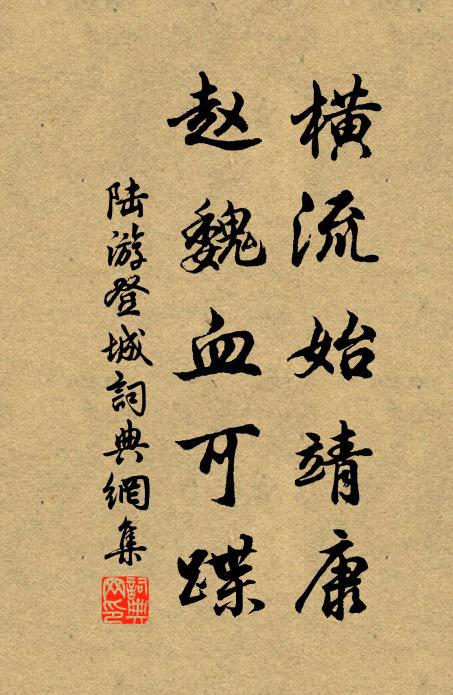 横流始靖康
赵魏血可蹀
陆游登城詞典網集
詞典网印